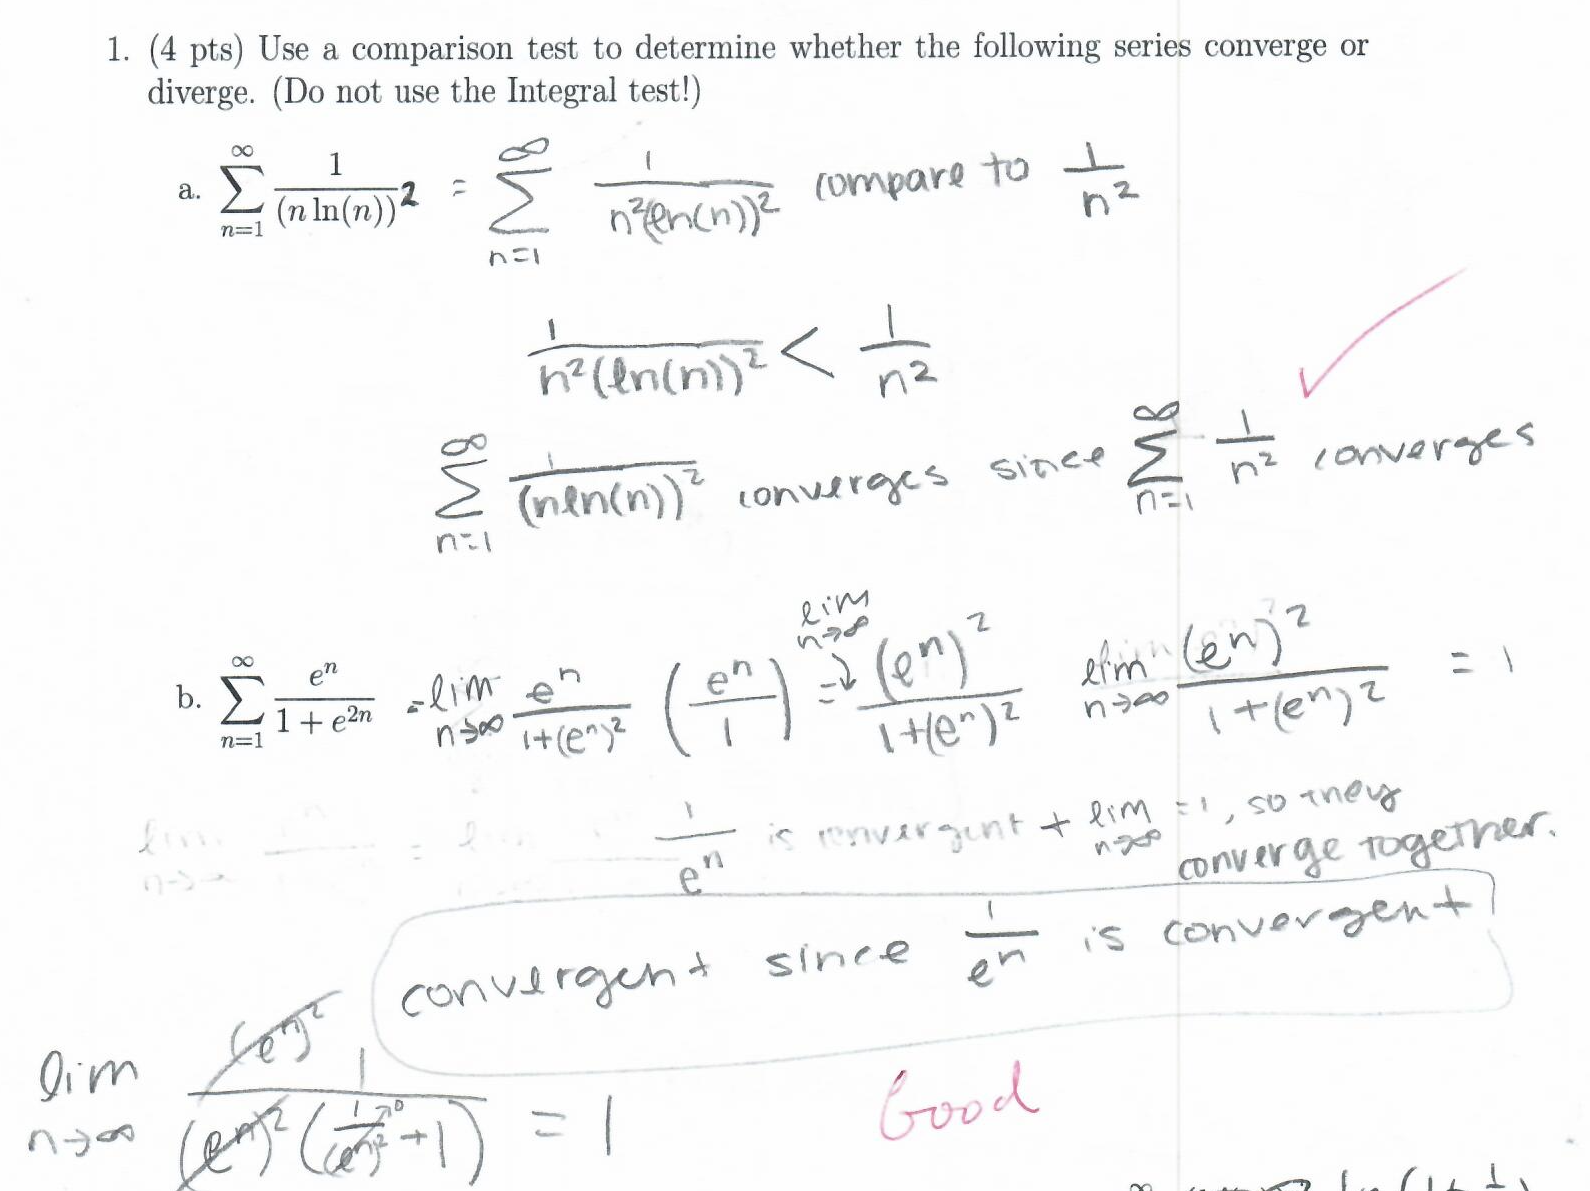 1. (4 pts) Use a comparison test to determine whether the following series converge or
diverge. (Do not use the Integral test!)
a. ∑_{n=1}^{∞} 1/(n ln(n))^2 = ∑_{n=1}^{∞} 1/(n^2(ln(n))^2) compare to 1/n^2
1/(n^2(ln(n))^2) < 1/n^2
∑_{n=1}^{∞} 1/(n ln(n))^2 converges since ∑_{n=1}^{∞} 1/n^2 converges
b. ∑_{n=1}^{∞} e^n/(1+e^{2n}) = lim_{n→∞} e^n/(1+(e^n)^2) (e^n/1) = lim_{n→∞} (e^n)^2/(1+(e^n)^2) lim_{n→∞} (e^n)^2/(1+(e^n)^2) = 1
1/e^n is convergent + lim_{n→∞} = 1, so they
converge together.
convergent since 1/e^n is convergent
lim_{n→∞} (e^n)^2 1/((e^n)^2(1/(e^n)^2 →0 + 1)) = 1
Good